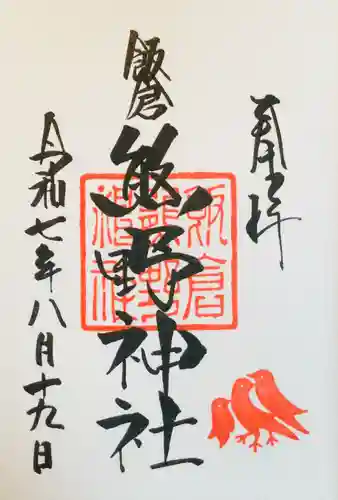 奉拝
飯倉
熊野神社
令和七年八月十九日
飯倉
熊野
神社